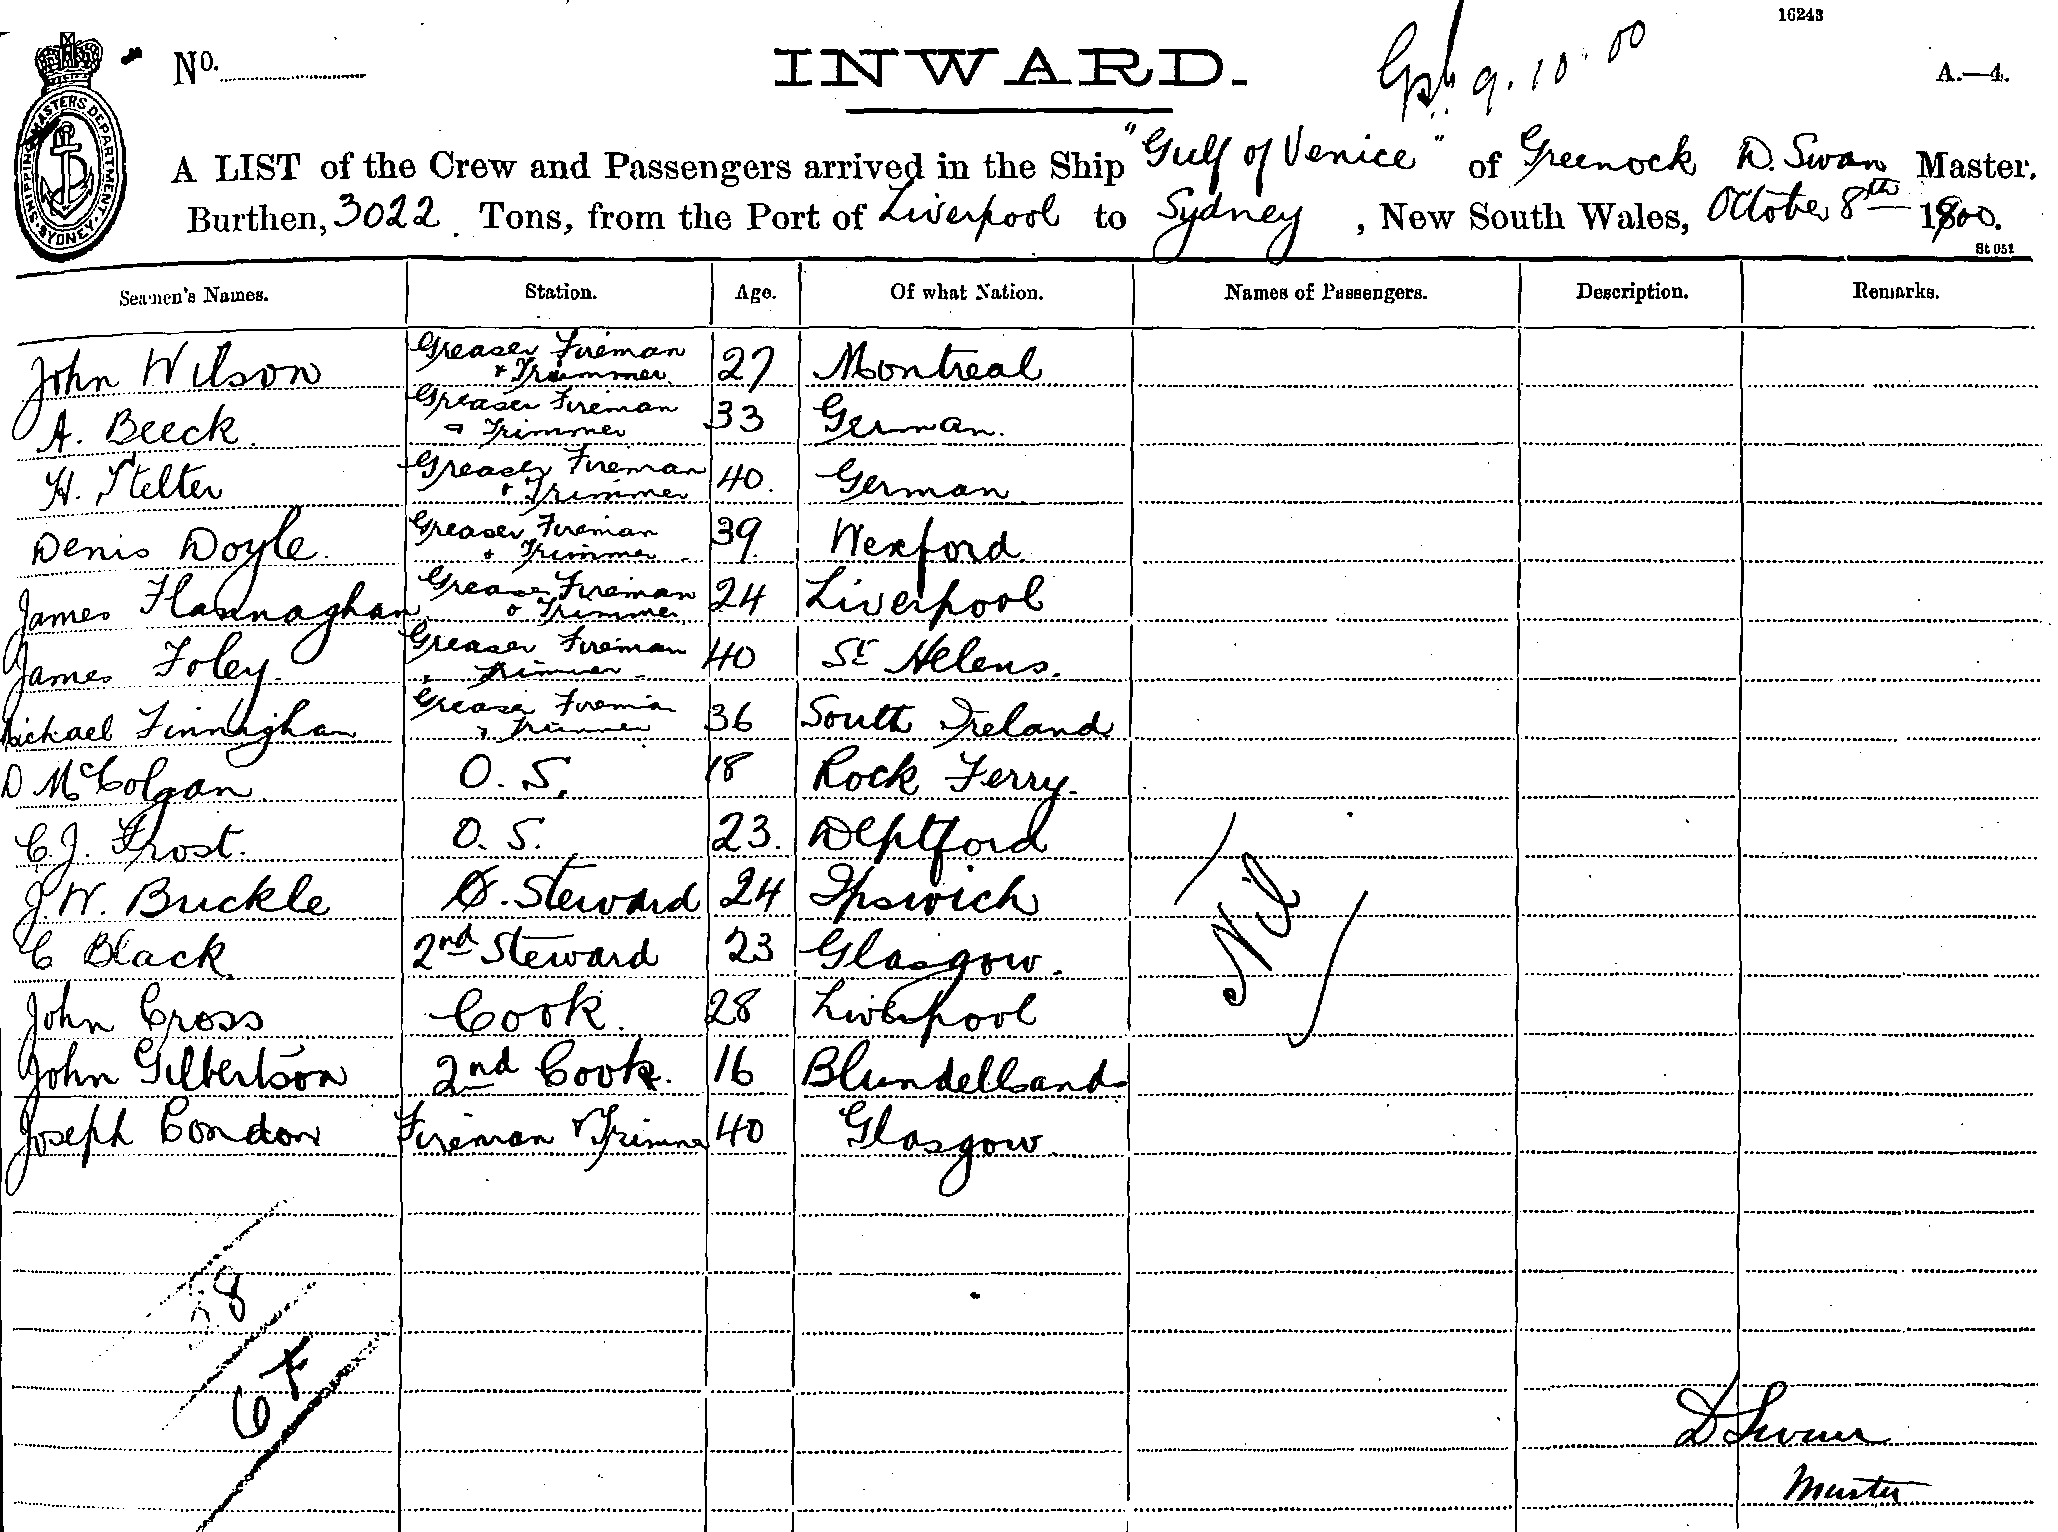 16243
No.
INWARD.
9.10.00
A.—4.
SHIPPING MASTERS DEPARTMENT. SYDNEY.
A LIST of the Crew and Passengers arrived in the Ship "Gulf of Venice" of Greenock D. Swan Master.
Burthen, 3022 Tons, from the Port of Liverpool to Sydney, New South Wales, October 8th 1900.
St 051
Seamen's Names. Station. Age. Of what Nation. Names of Passengers. Description. Remarks.
John Wilson Greaser Fireman & Trimmer 27 Montreal
A. Beeck. Greaser Fireman & Trimmer 33 German.
H. Stelter Greaser Fireman & Trimmer 40. German
Denis Doyle. Greaser Fireman & Trimmer 39 Wexford
James Flannaghan Greaser Fireman & Trimmer 24 Liverpool
James Foley. Greaser Fireman Trimmer 40 St Helens.
Michael Finnighan Greaser Fireman & Trimmer 36 South Ireland
D McColgan O. S. 18 Rock Ferry.
C. J. Frost. O. S. 23. Deptford
J. W. Buckle Steward 24 Ipswich
C Black 2nd Steward 23 Glasgow.
John Cross Cook. 28 Liverpool
John Gilbertson 2nd Cook. 16 Blundellsands
Joseph Condon Fireman & Trimmer 40 Glasgow
Nil
D Swan
Master